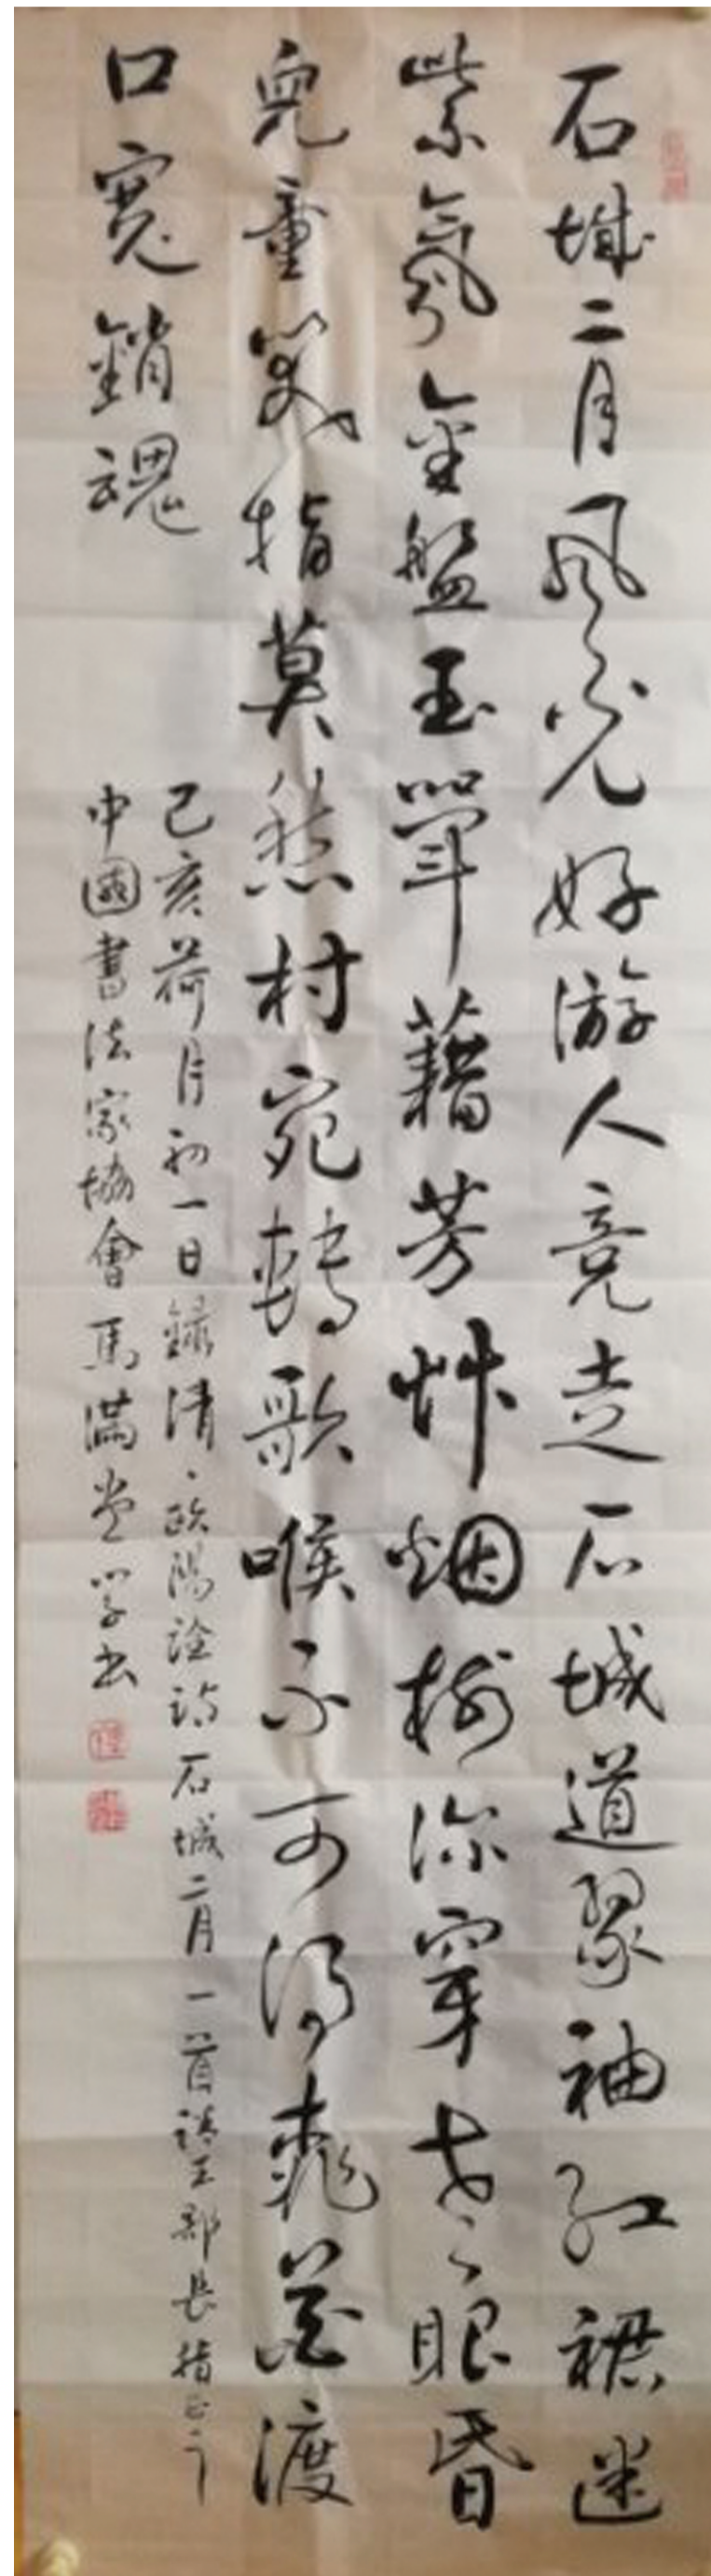 石城二月风光好游人竞走石城道翠袖红裙迷
紫氛金盤玉斝藉芳艸烟樹深穿老眼昏
兒童笑指莫愁村宛轉歌喉不可得桃花渡
口寃銷魂
己亥荷月初一日録清、欧陽詮詩石城二月一首請王部長指正
中國書法家協會馬滿堂學书